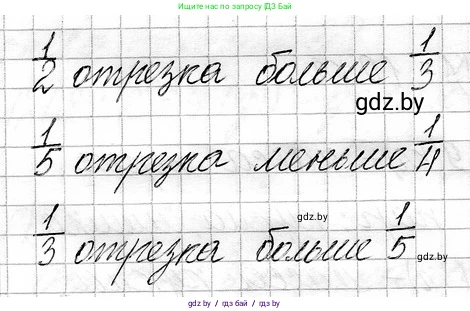 Пишите нам по запросу ГДЗ Бай
1/2 отрезка больше 1/3
gdz.by
1/5 отрезка меньше 1/4
gdz.by
1/3 отрезка больше 1/5
gdz.by / гдз бай / gdz.by